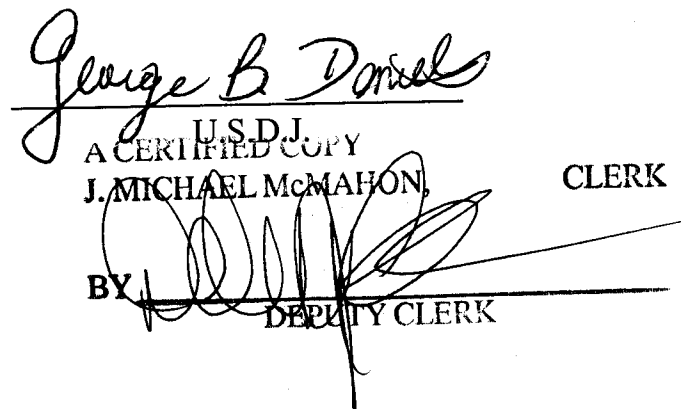 George B. Daniels
U.S.D.J.
A CERTIFIED COPY
J. MICHAEL McMAHON, CLERK
BY
DEPUTY CLERK